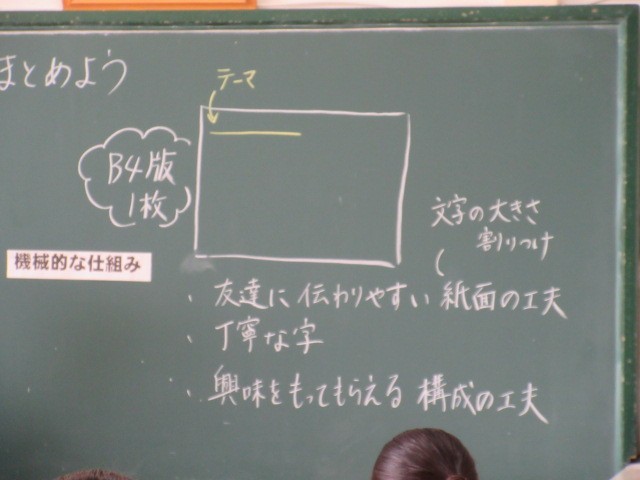 まとめよう
テーマ
B4版
1枚
文字の大きさ
割りつけ
機械的な仕組み
・友達に伝わりやすい紙面の工夫
・丁寧な字
・興味をもってもらえる構成の工夫